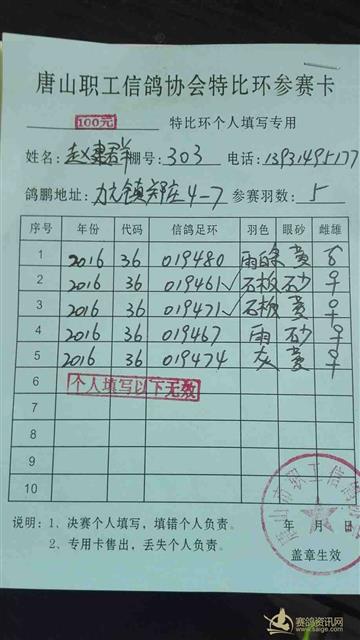 唐山职工信鸽协会特比环参赛卡
100元 特比环个人填写专用
姓名: 赵建群 棚号: 303 电话: 13931495177
鸽鹏地址: 镇郑庄4-7 参赛羽数: 5
序号 年份 代码 信鸽足环 羽色 眼砂 雌雄
1 2016 36 019480 雨 黄
2 2016 36 019461 √ 石板 砂 ♀
3 2016 36 019471 √ 石板 黄 ♀
4 2016 36 019467 雨 砂 ♀
5 2016 36 019474 灰 黄 ♀
6 个人填写以下无效
7
8
9
10
说明: 1、决赛个人填写,填错个人负责。
2、专用卡售出,丢失个人负责。
年 月 日
盖章生效
唐山市职工信鸽协会
赛鸽资讯网
www.saige.com